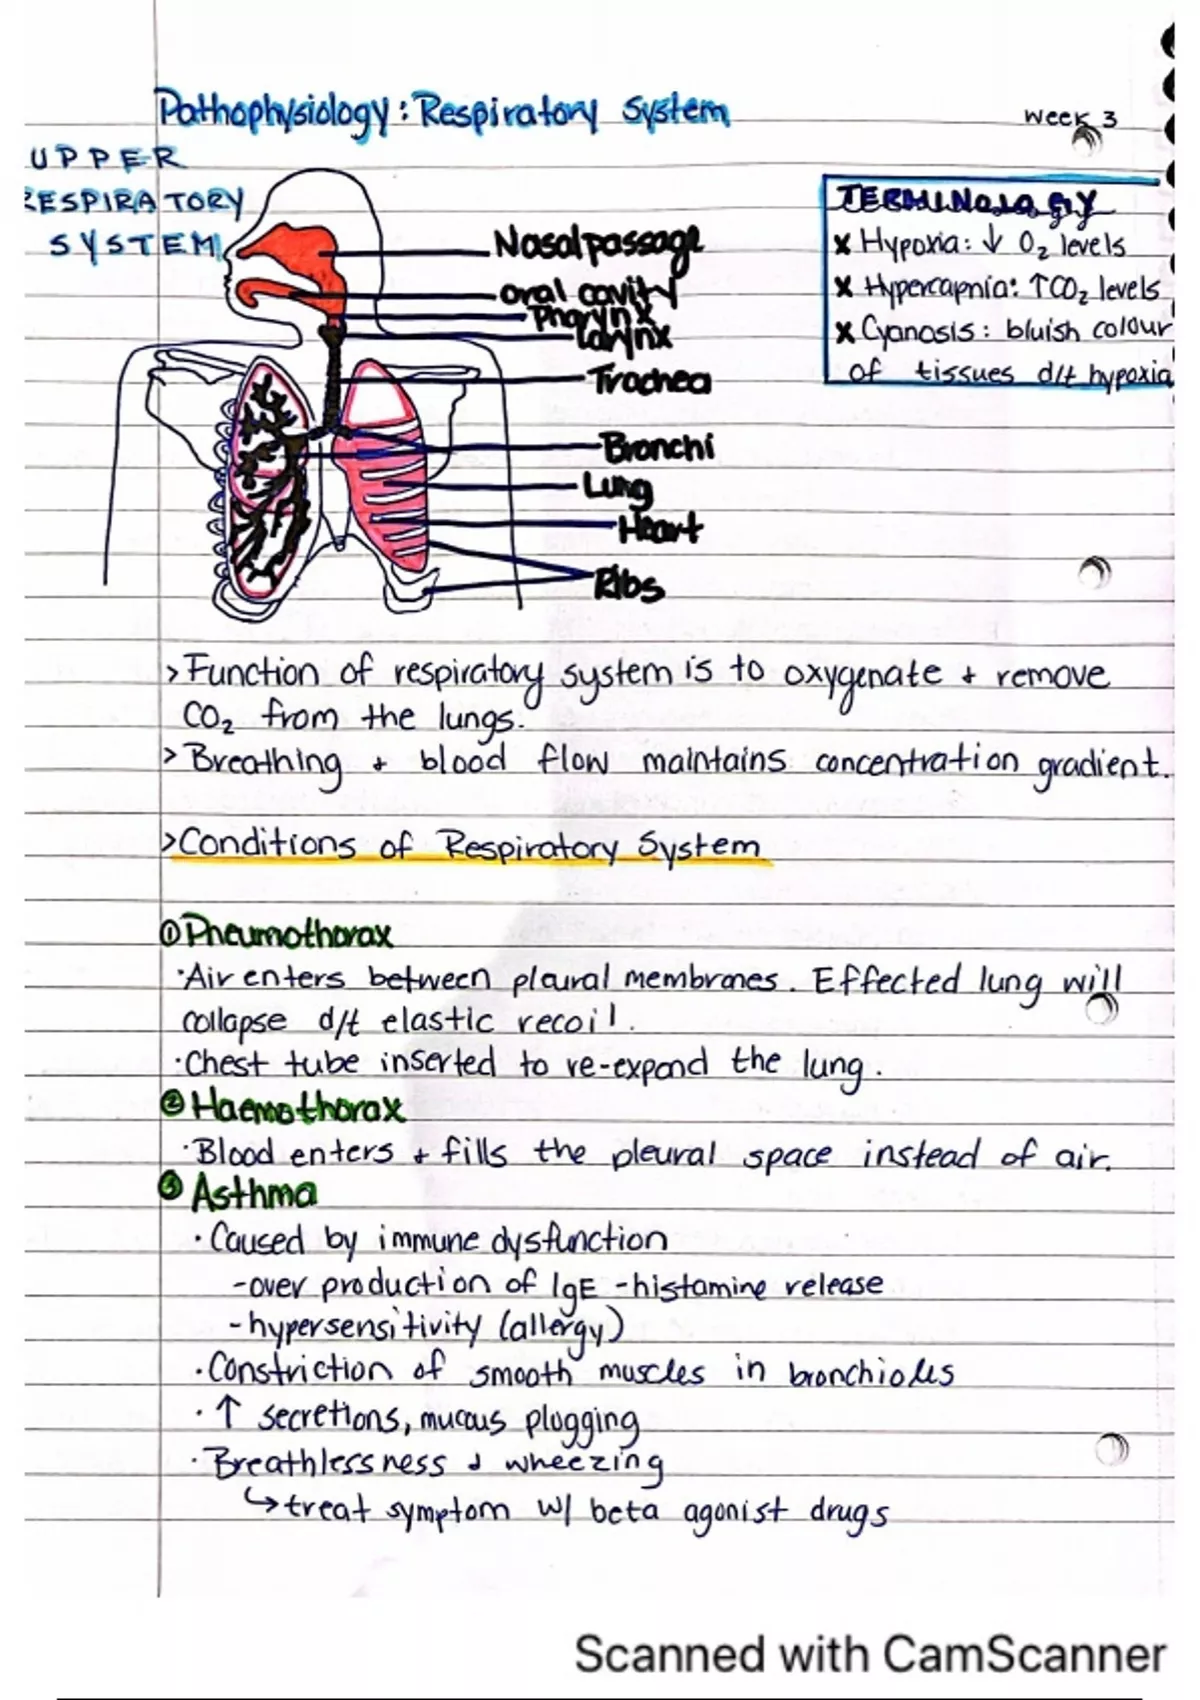 Pathophysiology: Respiratory System
Week 3
UPPER
RESPIRATORY
SYSTEM
TERMINOLOGY
x Hypoxia: ↓ O₂ levels
x Hypercapnia: ↑CO₂ levels
x Cyanosis: bluish colour
of tissues d/t hypoxia
Nasal passage
oral cavity
Pharynx
Larynx
Trachea
Bronchi
Lung
Heart
Ribs
> Function of respiratory system is to oxygenate + remove
CO₂ from the lungs.
> Breathing + blood flow maintains concentration gradient.
> Conditions of Respiratory System
① Pneumothorax
· Air enters between pleural membranes. Effected lung will
collapse d/t elastic recoil.
· Chest tube inserted to re-expand the lung.
② Haemothorax
· Blood enters + fills the pleural space instead of air.
③ Asthma
· Caused by immune dysfunction
- over production of IgE - histamine release
- hypersensitivity (allergy)
· Constriction of smooth muscles in bronchioles
· ↑ secretions, mucous plugging
· Breathlessness + wheezing
↳ treat symptom w/ beta agonist drugs
Scanned with CamScanner